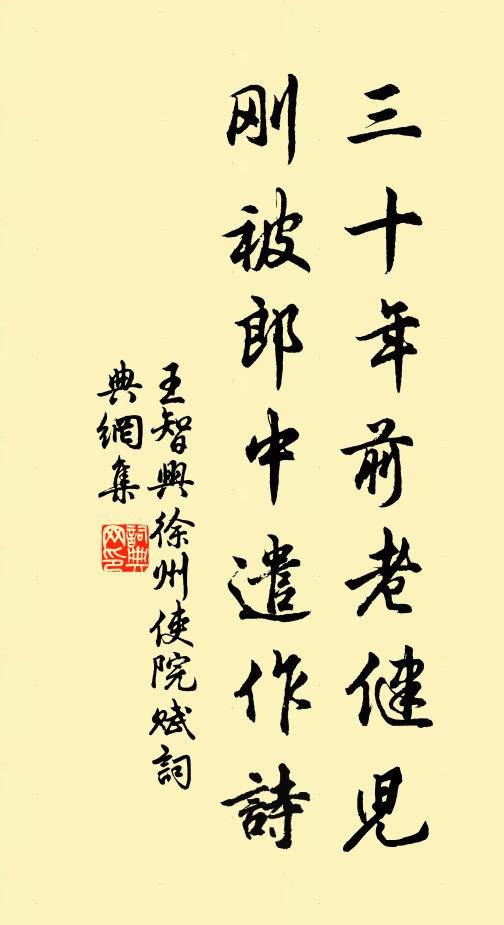 三十年前老健児
刚被郎中遣作詩
王智興徐州使院赋詞
典網集
詞典網印